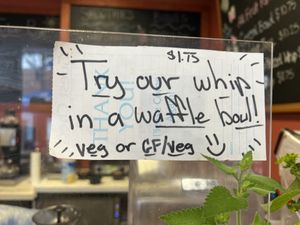 $1.75
Try our whip
in a waffle bowl!
veg or GF/veg
THANK
YOU!